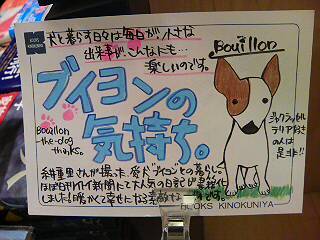 BOOKS
KINOKUNIYA
犬と暮らす日々は毎日が小さな
出来事が、こんなにも…
楽しいのです。
Bouillon
ブイヨンの
気持ち。
Bouillon
-the-dog
thinks.
ジャックラッセル
テリア好き
の人は
是非!!
糸井重里さんが撮った、愛犬"ブイヨン"との暮らし。
ほぼ日刊イトイ新聞にて大人気の日記が書籍化
しました!暖かくて幸せになる素敵な
です。
BOOKS KINOKUNIYA